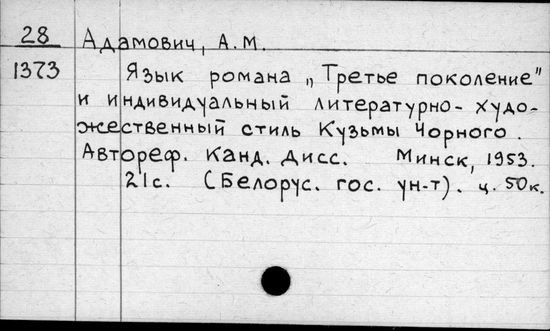 28 Адамович, А.М.
1373 Язык романа „Третье поколение"
и индивидуальный литературно-худо-
жественный стиль Кузьмы Чорного.
Автореф. канд. дисс. Минск, 1953.
21с. (Белорус. гос. ун-т). ц. 50к.